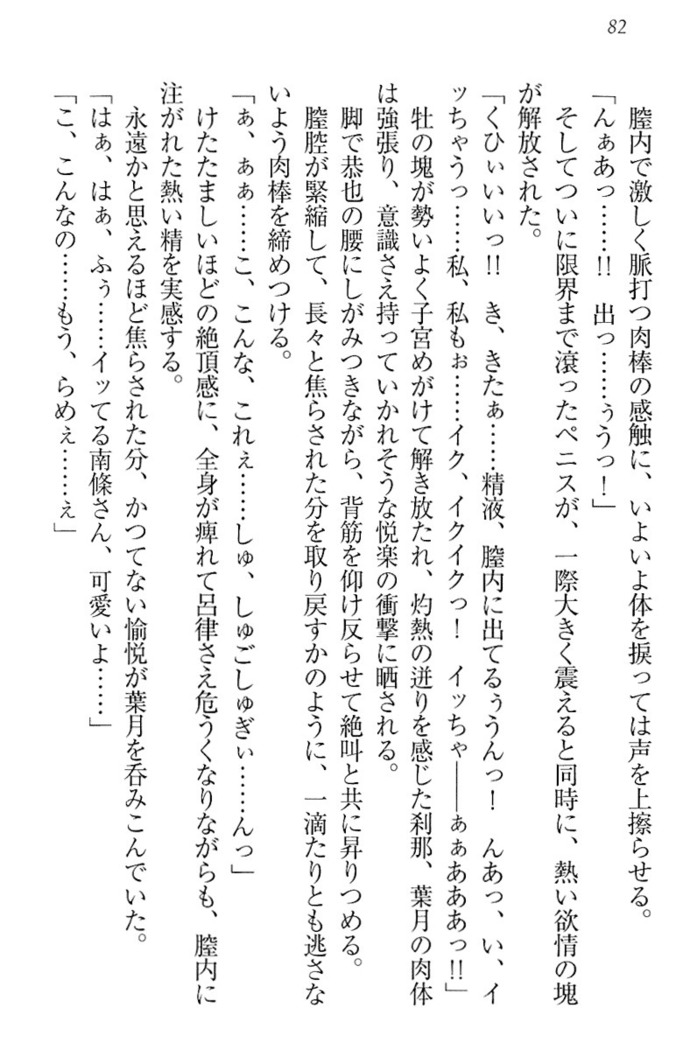 82
膣内で激しく脈打つ肉棒の感触に、いよいよ体を捩っては声を上擦らせる。
「んぁあっ……!! 出っ……ぅうっ！」
そしてついに限界まで滾ったペニスが、一際大きく震えると同時に、熱い欲情の塊
が解放された。
「くひぃいいっ!! き、きたぁ……精液、膣内に出てるぅうんっ！ んあっ、い、イ
ッちゃうっ……私、私もぉ……イク、イクイクっ！ イッちゃ――ぁぁあああっ!!」
牡の塊が勢いよく子宮めがけて解き放たれ、灼熱の迸りを感じた刹那、葉月の肉体
は強張り、意識さえ持っていかれそうな悦楽の衝撃に晒される。
脚で恭也の腰にしがみつきながら、背筋を仰け反らせて絶叫と共に昇りつめる。
膣腔が緊縮して、長々と焦らされた分を取り戻すかのように、一滴たりとも逃さな
いよう肉棒を締めつける。
「ぁ、ぁぁ……こ、こんな、これぇ……しゅ、しゅごしゅぎぃ……んっ」
けたたましいほどの絶頂感に、全身が痺れて呂律さえ危うくなりながらも、膣内に
注がれた熱い精を実感する。
永遠かと思えるほど焦らされた分、かつてない愉悦が葉月を呑みこんでいた。
「はぁ、はぁ、ふぅ……イッてる南條さん、可愛いよ……」
「こ、こんなの……もう、らめぇ……ぇ」